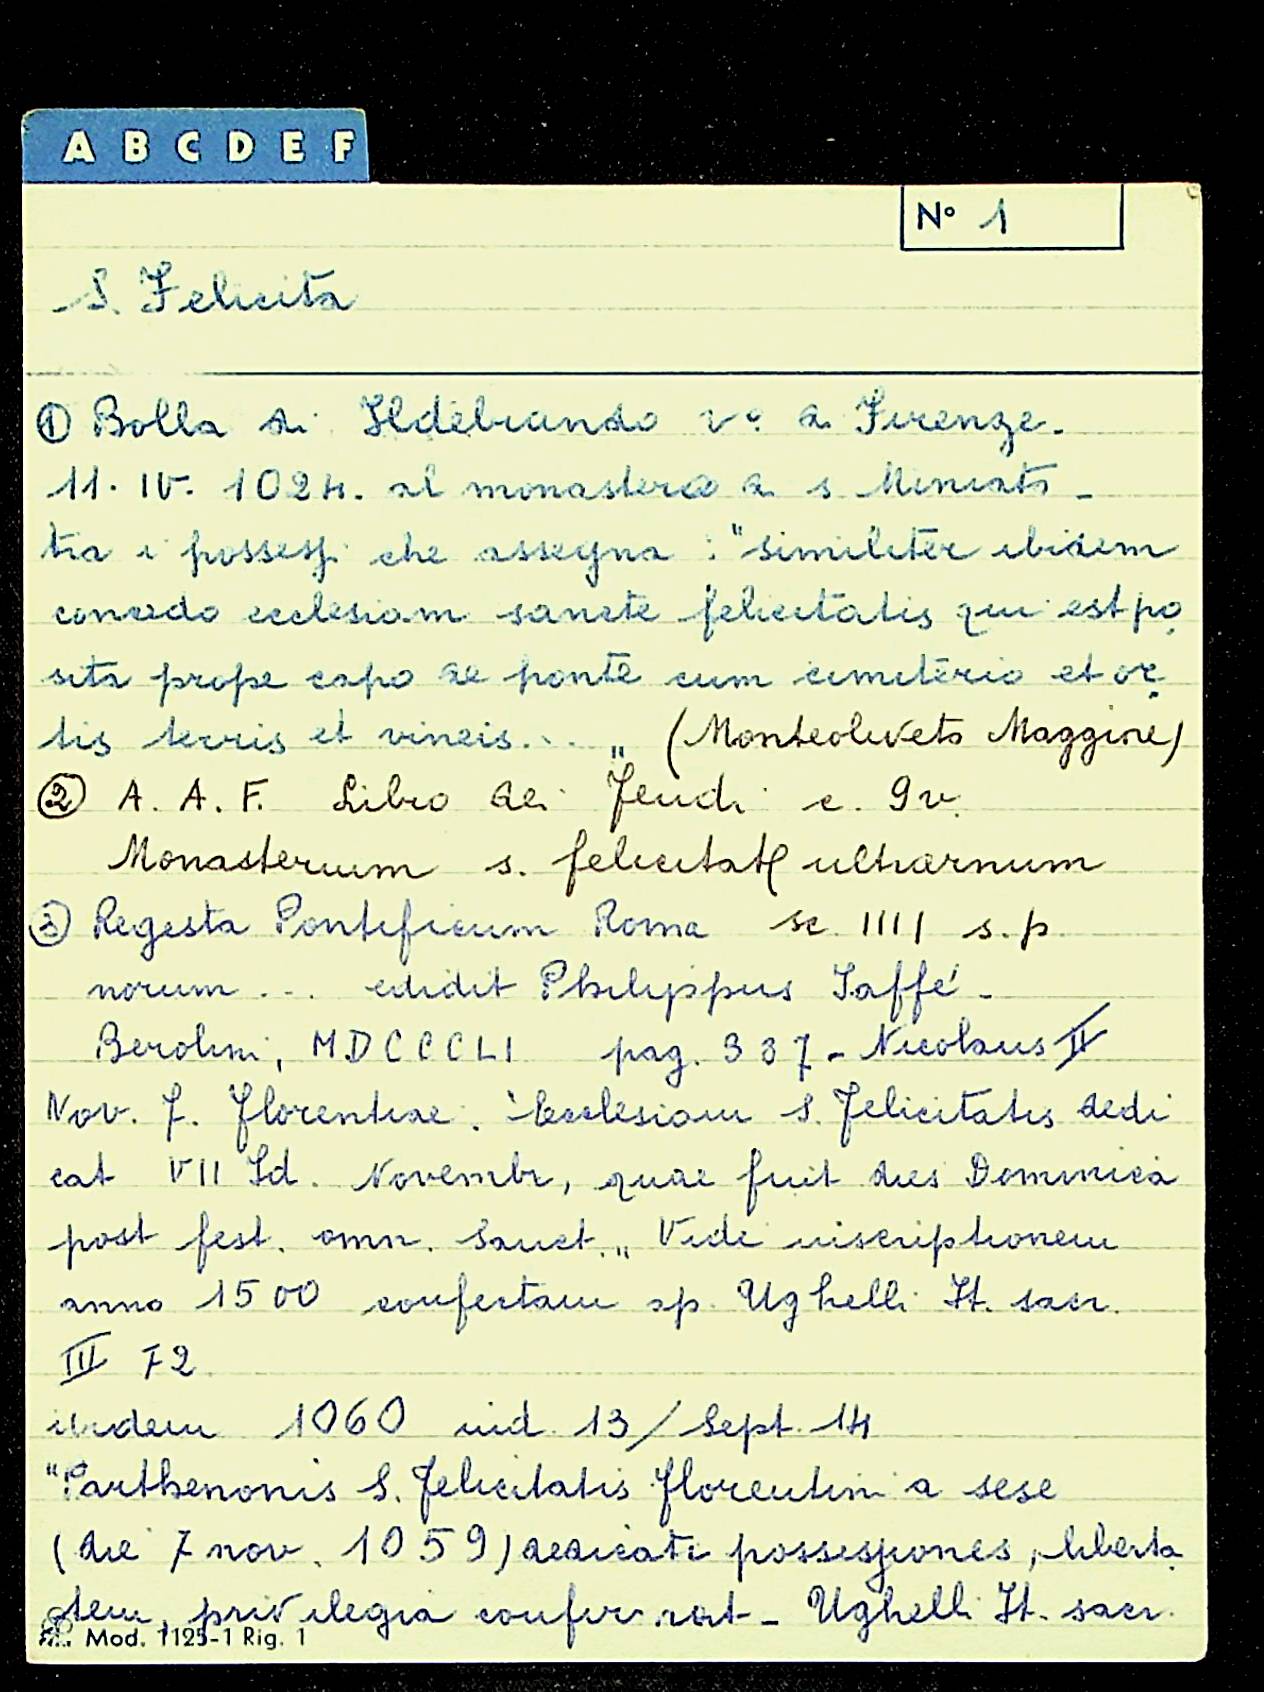 A B C D E F
N° 1
S. Felicita
① Bolla di Ildebrando v° di Firenze.
11. IV. 1024. al monastero di s. Miniato -
tra i possessi che assegna : "similiter ibidem
concedo ecclesiam sancte felicitatis qui est po
sita prope capo de ponte cum cimiterio et or
tis terris et vineis...." (Monteoliveto Maggiore)
② A. A. F. Libro dei Feudi c. 9v.
Monasterium s. felicitat ultrarnum
③ Regesta Pontificum Roma sc. IIII s. p
norum ... edidit Philippus Jaffé -
Berolini, MDCCCLI pag. 337 - Nicolaus II
Nov. 7. Florentiae. "Ecclesiam S. Felicitatis dedi
cat VII Id. Novembr, quae fuit dies Dominica
post fest. omn. Sanct." Vide inscriptionem
anno 1500 confectam ap. Ughelli It. sacr.
III 72
ibidem 1060 ind. 13 / Sept. 14
"Parthenonis S. Felicitatis Florentini a sese
(die 7 nov. 1059) dedicati possessiones, liberta
tem, privilegia confirmat - Ughelli It. sacr.
Mod. 1125-1 Rig. 1